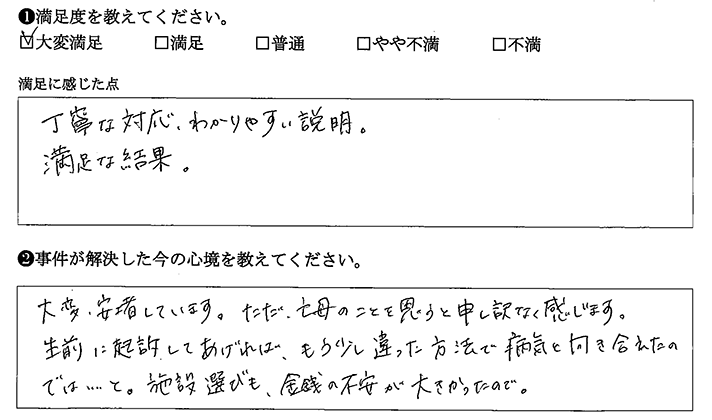 ❶満足度を教えてください。
☑大変満足 □満足 □普通 □やや不満 □不満
満足に感じた点
丁寧な対応、わかりやすい説明。
満足な結果。
❷事件が解決した今の心境を教えてください。
大変、安堵しています。ただ、亡母のことを思うと申し訳なく感じます。
生前に起訴してあげれば、もう少し違った方法で病気と向き合えたの
では…と。施設選びも、金銭の不安が大きかったので。